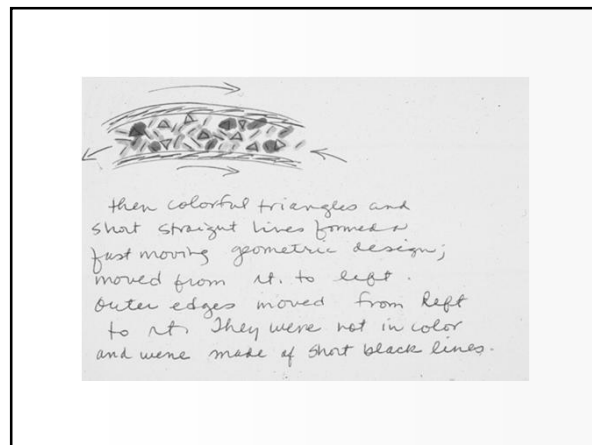 then colorful triangles and
short straight lines formed a
fast moving geometric design;
moved from rt. to left.
Outer edges moved from left
to rt. They were not in color
and were made of short black lines.